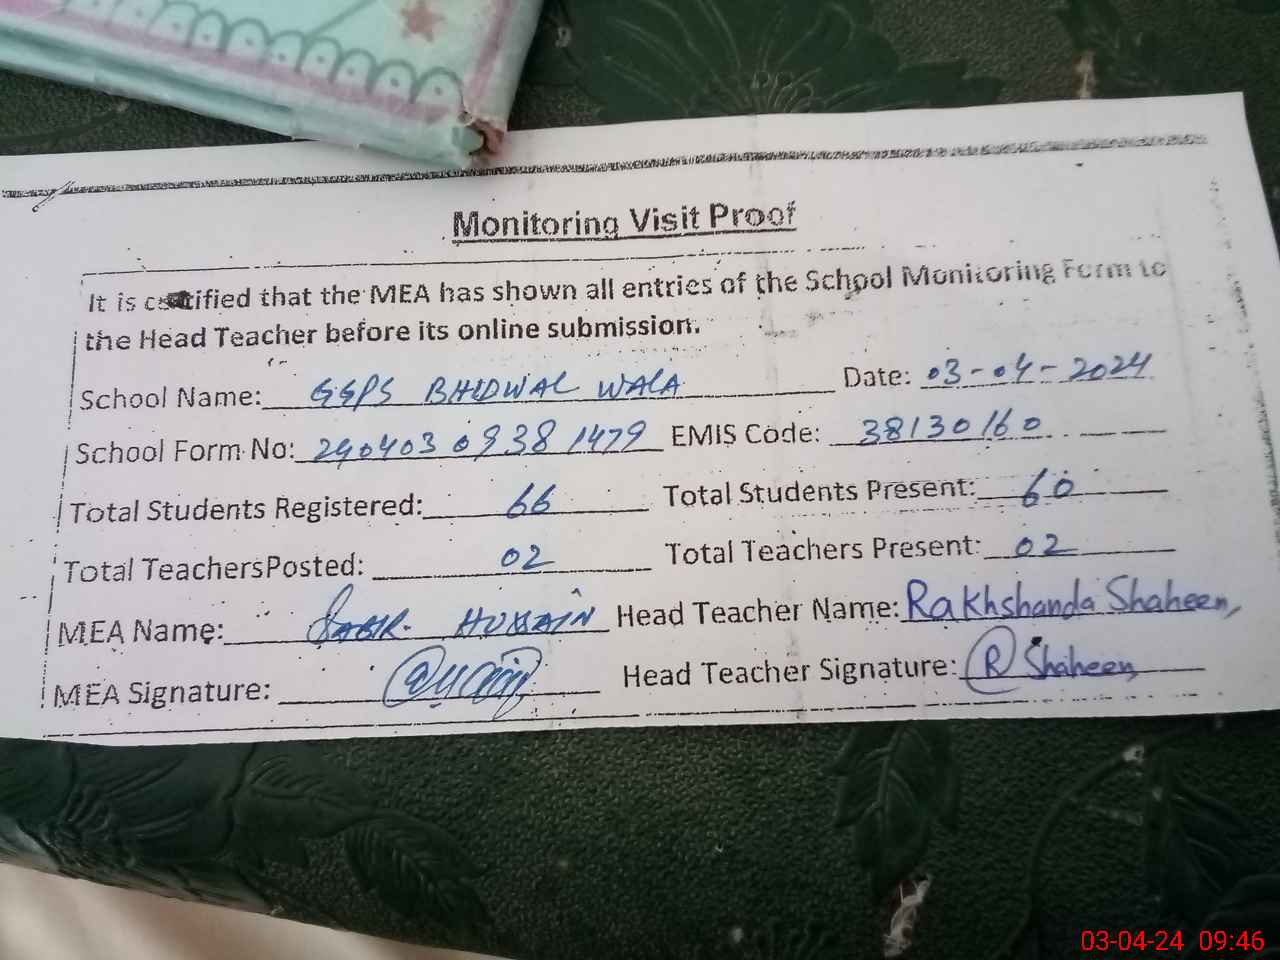 Monitoring Visit Proof
It is certified that the MEA has shown all entries of the School Monitoring Form to
the Head Teacher before its online submission.
School Name: GGPS BHIDWAL WALA Date: 03-04-2024
School Form No: 2404030938 1479 EMIS Code: 38130160
Total Students Registered: 66 Total Students Present: 60
Total TeachersPosted: 02 Total Teachers Present: 02
MEA Name: SABIR HUSSAIN Head Teacher Name: Rakhshanda Shaheen,
MEA Signature: Head Teacher Signature: R Shaheen,
03-04-24 09:46